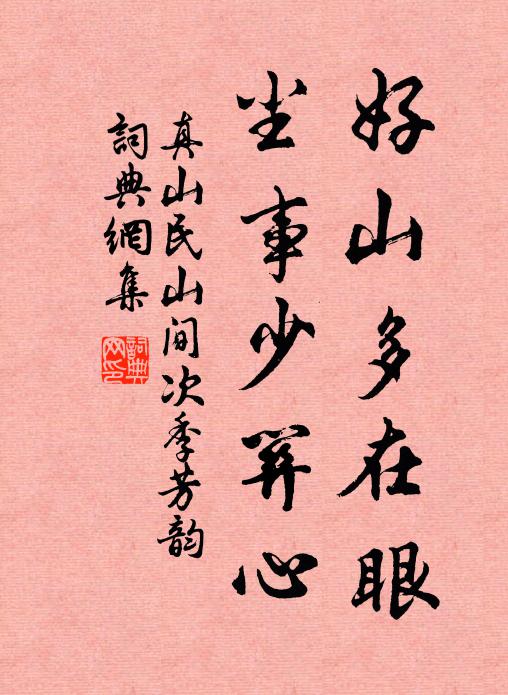 好山多在眼
尘事少关心
真山民山间次季芳韵
詞典網集
詞典网印